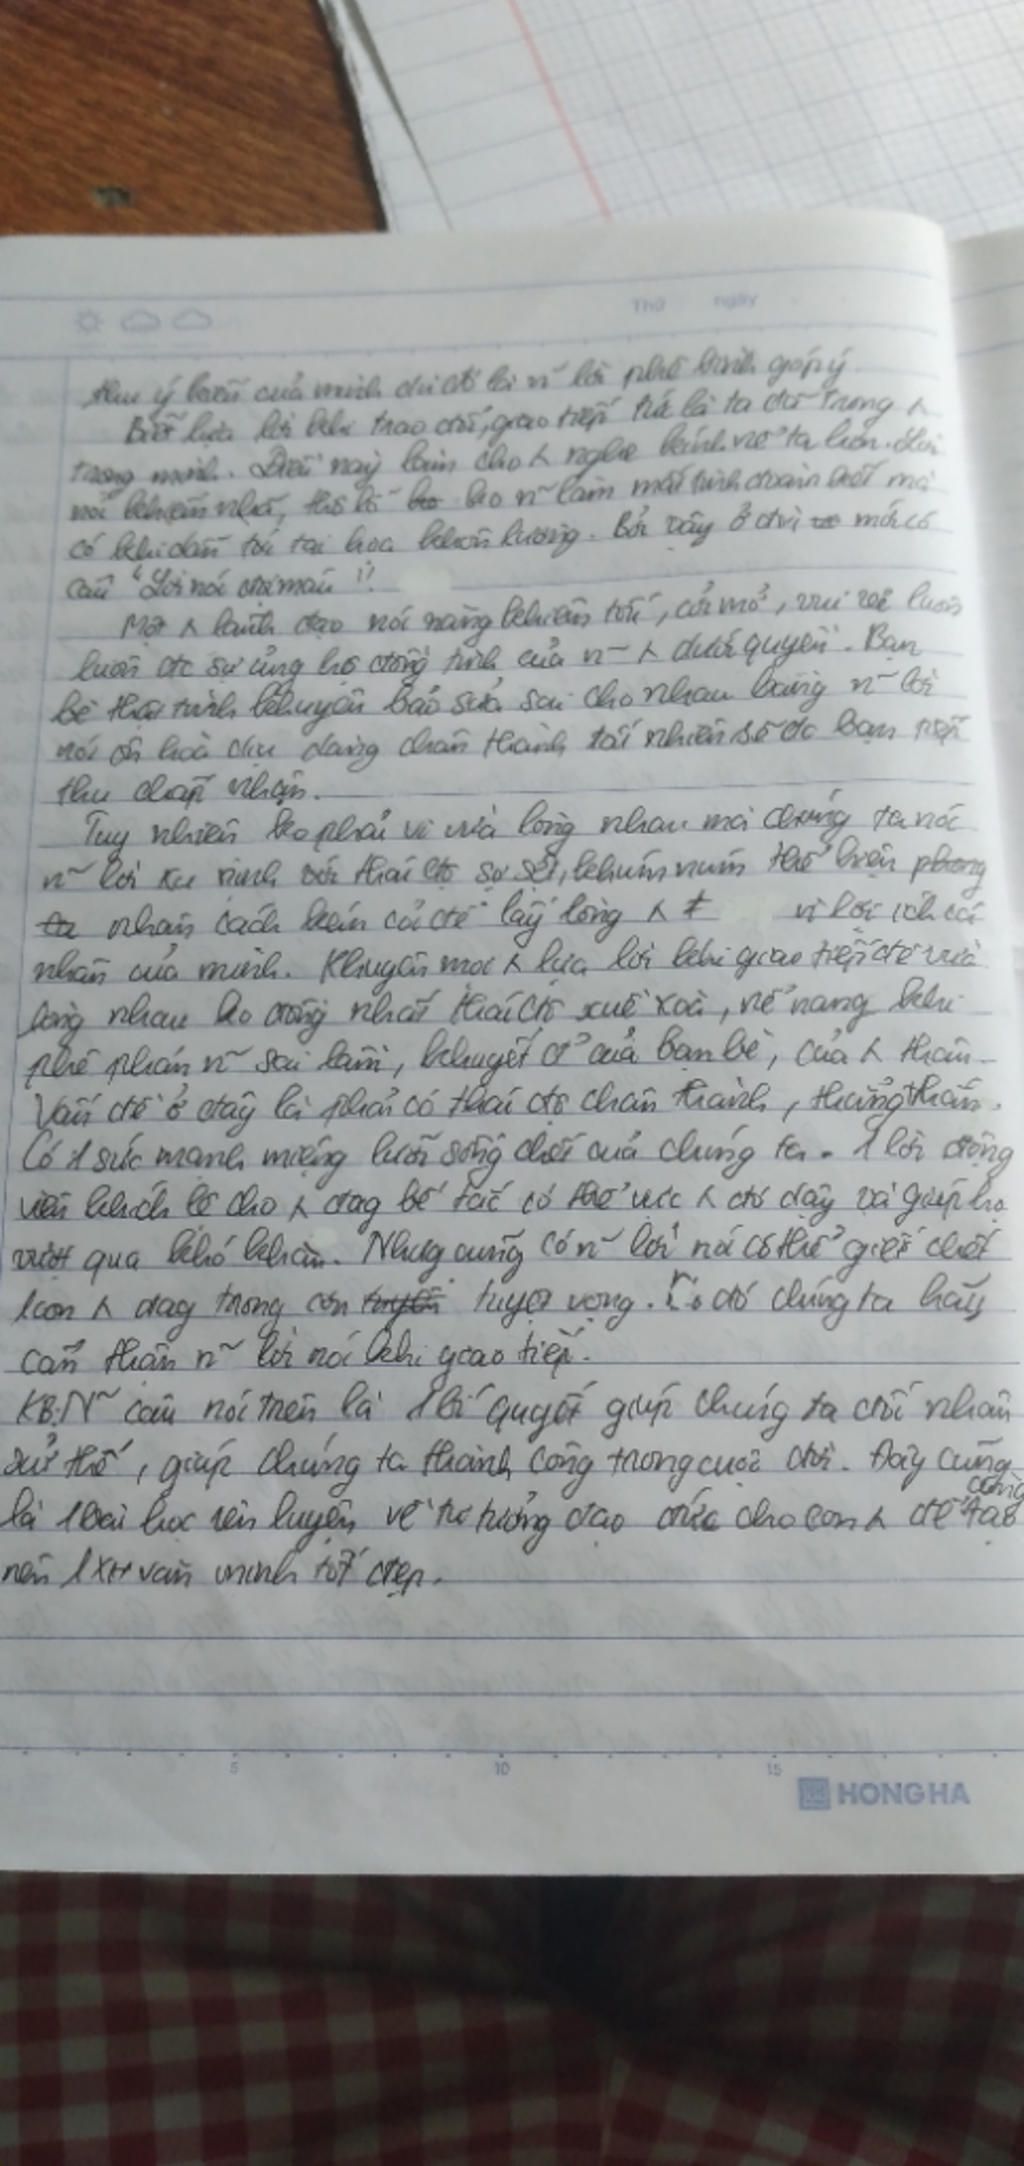 Thứ ngày
thu ý kiến của mình dù đó là n~ lời phê bình góp ý.
Biết lựa lời khi trao đổi, giao tiếp tức là ta đã trong
trọng mình. Điều này làm cho ʌ nghe kính nể ta hơn. Lời
nói khiếm nhã, thô lỗ ko n~ làm mất tình đoàn kết mà
có khi dẫn tới tai hoạ khôn lường. Bởi vậy ở đvị mới có
câu "Lời nói đọi máu"!
Một ʌ lãnh đạo nói năng khiêm tốn, cởi mở, vui vẻ luôn
luôn đc sự ủng hộ đồng tình của n~ ʌ dưới quyền. Bạn
bè thật tình khuyên bảo sửa sai cho nhau bằng n~ lời
nói ôn hoà dịu dàng chân thành tất nhiên sẽ đc bạn tiếp
thu chấp nhận.
Tuy nhiên ko phải vì vừa lòng nhau mà chúng ta nói
n~ lời xu nịnh với thái độ sợ sệt, khúm núm thể hiện
nhân cách hèn để lấy lòng ʌ vì lợi ích cá
nhân của mình. Khuyên mọi ʌ lựa lời khi giao tiếp để vừa
lòng nhau ko đồng nhất thái độ xuề xoà, nể nang khi
phê phán n~ sai lầm, khuyết đ' của bạn bè, của ʌ thân.
Vấn đề ở đây là phải có thái độ chân thành, thẳng thắn.
Có 1 sức mạnh miệng lưỡi sống chết của chúng ta. 1 lời động
viên khích lệ cho ʌ đag bế tắc có thể vực ʌ đó dậy và giúp họ
vượt qua khó khăn. Nhưg cũng có n~ lời nói có thể giết chết
1 con ʌ đag trong cơn tuyệt vọng. Do đó chúng ta hãy
cẩn thận n~ lời nói khi giao tiếp.
KB: N~ câu nói trên là 1 bí quyết giúp chúng ta đối nhân
xử thế, giúp chúng ta thành công trong cuộc đời. Đây cũng
là 1 bài học rèn luyện về tư tưởng đạo đức cho con ʌ để tạo
nên 1 XH văn minh tốt đẹp.
5 10 15
HONG HA